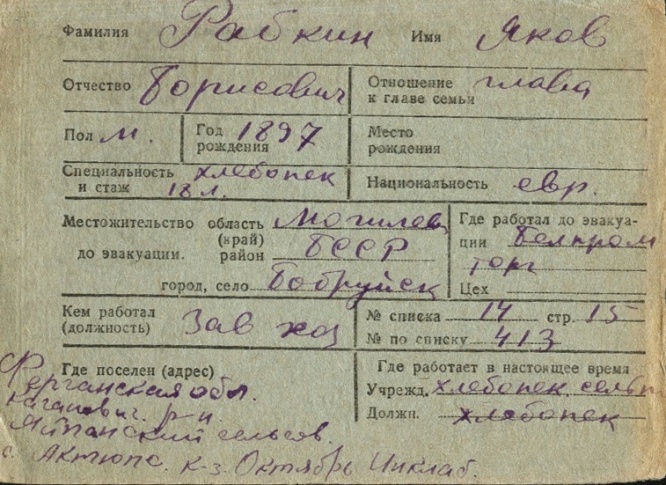 Фамилия Рабкин Имя Яков
Отчество Борисович Отношение к главе семьи глава
Пол м. Год рождения 1897 Место рождения
Специальность и стаж хлебопек 18 л. Национальность евр.
Местожительство до эвакуации. область (край) Могилев Где работал до эвакуации Белпром
район БССР торг
город, село Бобруйск Цех
Кем работал (должность) Зав хоз № списка 14 стр. 15
№ по списку 413
Где поселен (адрес) Где работает в настоящее время
Ферганская обл. Учрежд. хлебопек. сельп
Каганович. р-н Должн. хлебопек
Яйпанский сельсов.
с. Актюпе. к-з. Октябрь Инклаб.